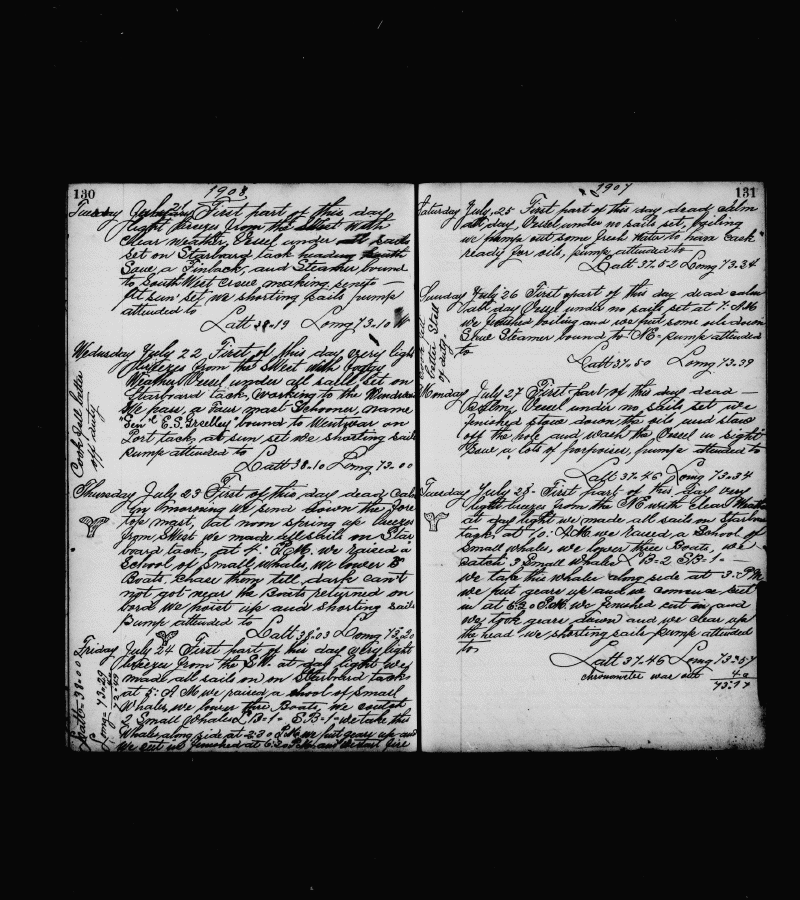 130
1908
Tuesday July 21 First part of this day
light breezes from the West with
clear weather, Vessel under all sails
set on Starboard tack heading South
Saw a Finback, and Steamer bound
to South West
At sun set we shorting sails pump
attended to
Latt 38-19 Long 73-10 W
Wednesday July 22 First of this day very light
breezes from the West with foggy
Weather Vessel under all sails set on
Starboard tack, working to the Windward
We pass, a Four mast Schooner, name
"Gen" E.S. Greelley" bound to Westwar on
Port tack, at sun set we shorting sails
Pump attended to
Latt 38-10 Long 73-00
off duty
Thursday July 23 First of this day dead Calm
in morning we send down the Fore
top mast, at noon spring up breezes
from S West we made all sails on Star
board tack, at 4: P.M. we raised a
School of small whales, we lower 3
Boats, chase them till dark can't
not got near the Boats returned on
bord we hoist up and shorting sails
pump attended to
Latt 38:03 Long 73.20
Friday July 24 First part of his day very light
breezes from the S.W. at day light we
made all sails on on Starboard tacks
at 5: A M we raised a school of small
Whales, we lower three Boats, we
2 Small Whales L.B-1- S.B-1- we take this
Whales along side at 2:30 P.M. we put gears up and
we cut in finished at 6:20 P.M. and we start fire
Latt = 38=00
Long = 73=29
131
1907
Saturday July, 25 First part of this day dead calm
all day Vessel under no sails set, boiling
we pump out some fresh water to have cask
ready for oils, pump attended to
Latt 37.52 Long 73.34
Sunday July 26 First part of this day dead calm
all day Vessel under no sails set at 7: A.M.
we finished boiling and we put some oils down
Saw Steamer bound to N- pump attended
to
Latt 37.50 Long 73.39
Still
off duty
Monday July 27 First part of this day dead
Calm, Vessel under no sails set we
finished stow down the oils and stow
off the hole and wash the Vessel in sight
Saw a lots of porpoises, pump attended to
Latt 37-46 Long 73-34
Tuesday July 28- First part of this day very
light breezes from the N with clear Weather
at day light we made all sails on Starboard
tack, at 10: A.M. we raised a School of
Small whales, we lower three Boats, we
catch 3 Small whales L B-2 S.B-1-
we take this whales along side at 3. P.M.
we put gears up and we comence cut
in at 6:20 P.M. we finished cut in and
we took gears down and we clear up
the head we shorting sails pump attended
to
Latt 37.46 Long
chronometer was out